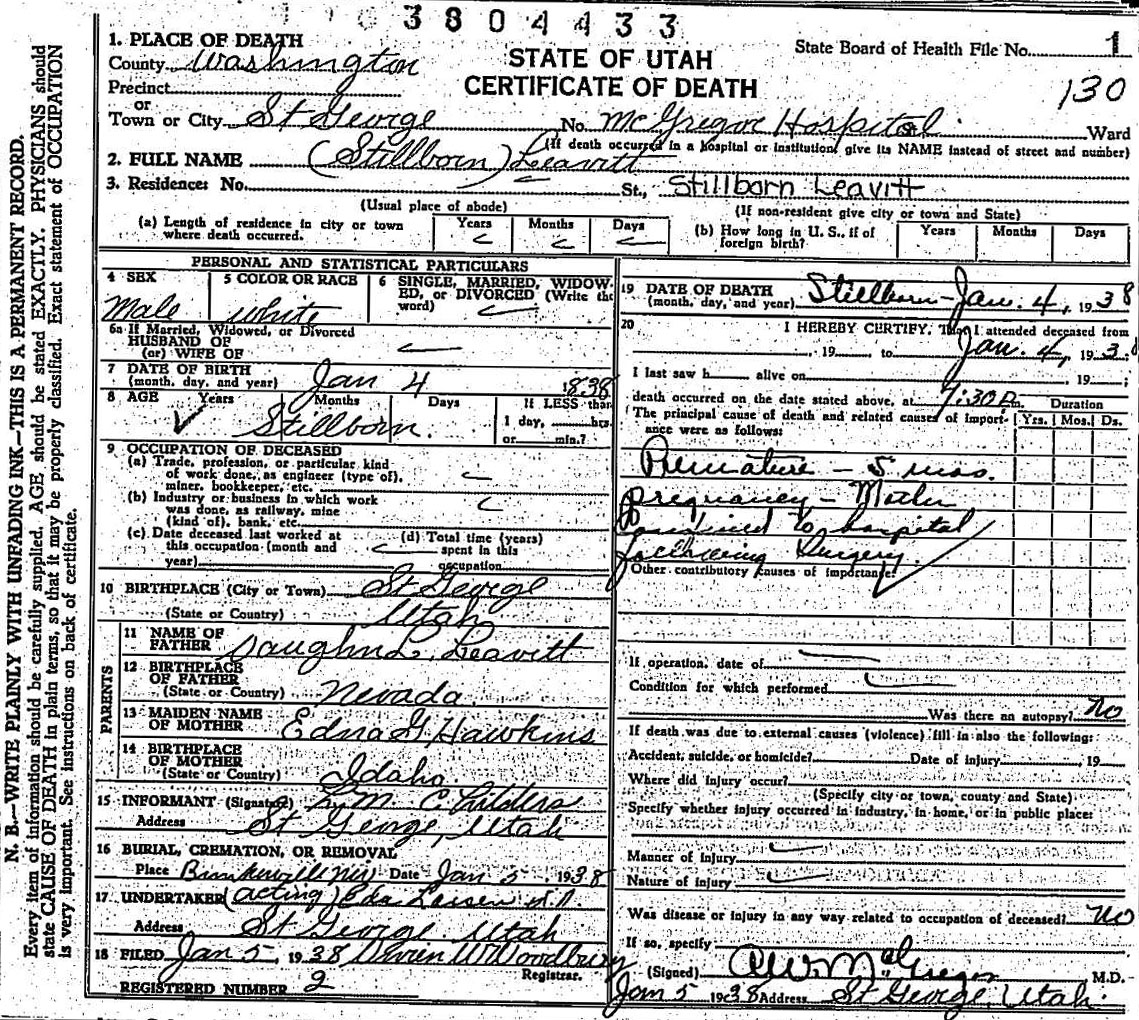 3804433
1. PLACE OF DEATH
County Washington
Precinct
or
Town or City St George
STATE OF UTAH
CERTIFICATE OF DEATH
State Board of Health File No. 1
130
No. McGregor Hospital Ward
(If death occurred in a hospital or institution, give its NAME instead of street and number)
2. FULL NAME (Stillborn) Leavitt
3. Residence: No. St., Stillborn Leavitt
(Usual place of abode) (If non-resident give city or town and State)
(a) Length of residence in city or town where death occurred. Years Months Days
(b) How long in U. S., if of foreign birth? Years Months Days
PERSONAL AND STATISTICAL PARTICULARS
4 SEX 5 COLOR OR RACE 6 SINGLE, MARRIED, WIDOWED, or DIVORCED (Write the word)
Male white
6a If Married, Widowed, or Divorced
HUSBAND OF
(or) WIFE OF
7 DATE OF BIRTH
(month, day, and year) Jan 4 1838
8 AGE Years Months Days If LESS than
1 day, hrs.
or min.?
Stillborn.
9 OCCUPATION OF DECEASED
(a) Trade, profession, or particular kind
of work done, as engineer (type of),
miner, bookkeeper, etc.
(b) Industry or business in which work
was done, as railway, mine
(kind of), bank, etc.
(c) Date deceased last worked at
this occupation (month and
year)
(d) Total time (years)
spent in this
occupation
10 BIRTHPLACE (City or Town) St George
(State or Country) Utah
PARENTS
11 NAME OF
FATHER Vaughn L. Leavitt
12 BIRTHPLACE
OF FATHER
(State or Country) Nevada
13 MAIDEN NAME
OF MOTHER Edna G. Hawkins
14 BIRTHPLACE
OF MOTHER
(State or Country) Idaho.
15 INFORMANT (Signature) L. M. Childers
Address St George, Utah
16 BURIAL, CREMATION, OR REMOVAL
Place Bunkerville Nev Date Jan 5 1938
17 UNDERTAKER (acting) Eda Lassen
Address St George Utah
18 FILED Jan 5, 1938 Woodbury
Registrar.
REGISTERED NUMBER 2
19 DATE OF DEATH
(month, day, and year) Stillborn - Jan. 4, 1938
20 I HEREBY CERTIFY, That I attended deceased from
, 19 to Jan. 4, 193
I last saw h alive on , 19 ;
death occurred on the date stated above, at 7:30 P.m. Duration
The principal cause of death and related causes of importance were as follows: Yrs. Mos. Ds.
Premature - 5 mos.
pregnancy - Mother
confined to hospital
following surgery.
Other contributory causes of importance:
If operation, date of
Condition for which performed
Was there an autopsy? No
If death was due to external causes (violence) fill in also the following:
Accident, suicide, or homicide? Date of injury , 19
Where did injury occur?
(Specify city or town, county and State)
Specify whether injury occurred in industry, in home, or in public place:
Manner of injury
Nature of injury
Was disease or injury in any way related to occupation of deceased? No
If so, specify
(Signed) McGregor M.D.
Jan 5 1938 Address St George, Utah.
N. B.—WRITE PLAINLY WITH UNFADING INK—THIS IS A PERMANENT RECORD.
Every item of information should be carefully supplied. AGE should be stated EXACTLY. PHYSICIANS should
state CAUSE OF DEATH in plain terms, so that it may be properly classified. Exact statement of OCCUPATION
is very important. See instructions on back of certificate.